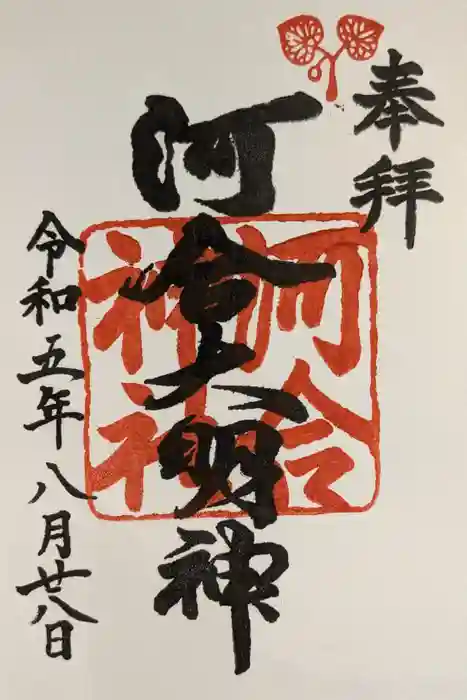 奉拝
河會大明神
河合
神社
令和五年八月廿八日